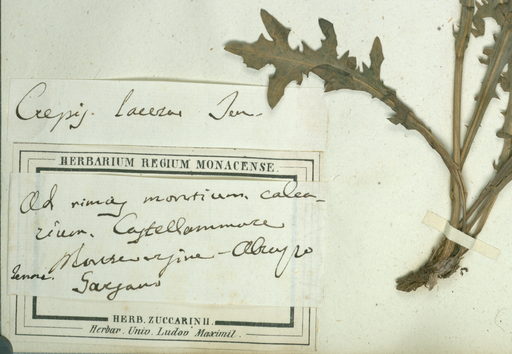 Crepis. lacera Ten.
HERBARIUM REGIUM MONACENSE.
Ad rimas montium calca-
rium. Castellammare
Montevergine - Abruzzo
Tenore. Gargano
HERB. ZUCCARINII.
Herbar. Univ. Ludov Maximil.